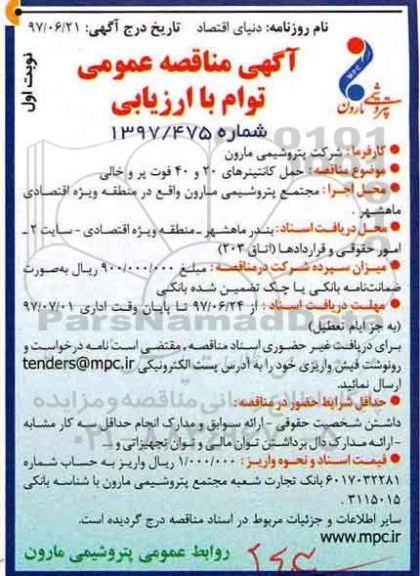 نام روزنامه: دنیای اقتصاد    تاریخ درج آگهی: ۹۷/۰۶/۲۱
آگهی مناقصه عمومی
توام با ارزیابی
شماره ۱۳۹۷/۴۷۵
نوبت اول
MPC
پتروشیمی مارون
● کارفرما: شرکت پتروشیمی مارون
● موضوع مناقصه: حمل کانتینرهای ۲۰ و ۴۰ فوت پر و خالی
● محل اجرا: مجتمع پتروشیمی مارون واقع در منطقه ویژه اقتصادی
ماهشهر.
● محل دریافت اسناد: بندر ماهشهر ـ منطقه ویژه اقتصادی - سایت ۲ ـ
امور حقوقی و قراردادها (اتاق ۳۰۳)
● میزان سپرده شرکت درمناقصه: مبلغ ۹۰۰/۰۰۰/۰۰۰ ریال به‌صورت
ضمانت‌نامه بانکی یا چک تضمین شده بانکی
● مهلت دریافت اسناد: از ۹۷/۰۶/۲۴ تا پایان وقت اداری ۹۷/۰۷/۰۱
(به جز ایام تعطیل)
برای دریافت غیر حضوری اسناد مناقصه، مقتضی است نامه درخواست و
رونوشت فیش واریزی خود را به آدرس پست الکترونیکی tenders@mpc.ir
ارسال نمائید.
● حداقل شرایط حضور در مناقصه:
داشتن شخصیت حقوقی - ارائه سوابق و مدارک انجام حداقل سه کار مشابه
-ارائه مدارک دال برداشتن توان مالی و توان تجهیزاتی و ...
● قیمت اسناد و نحوه واریز: ۱/۰۰۰/۰۰۰ ریال واریز به حساب شماره
۶۰۱۷۰۳۲۲۸۱ بانک تجارت شعبه مجتمع پتروشیمی مارون با شناسه بانکی
۳۱۱۵۰۱۵.
سایر اطلاعات و جزئیات مربوط در اسناد مناقصه درج گردیده است.
www.mpc.ir
روابط عمومی پتروشیمی مارون
ParsNamadData